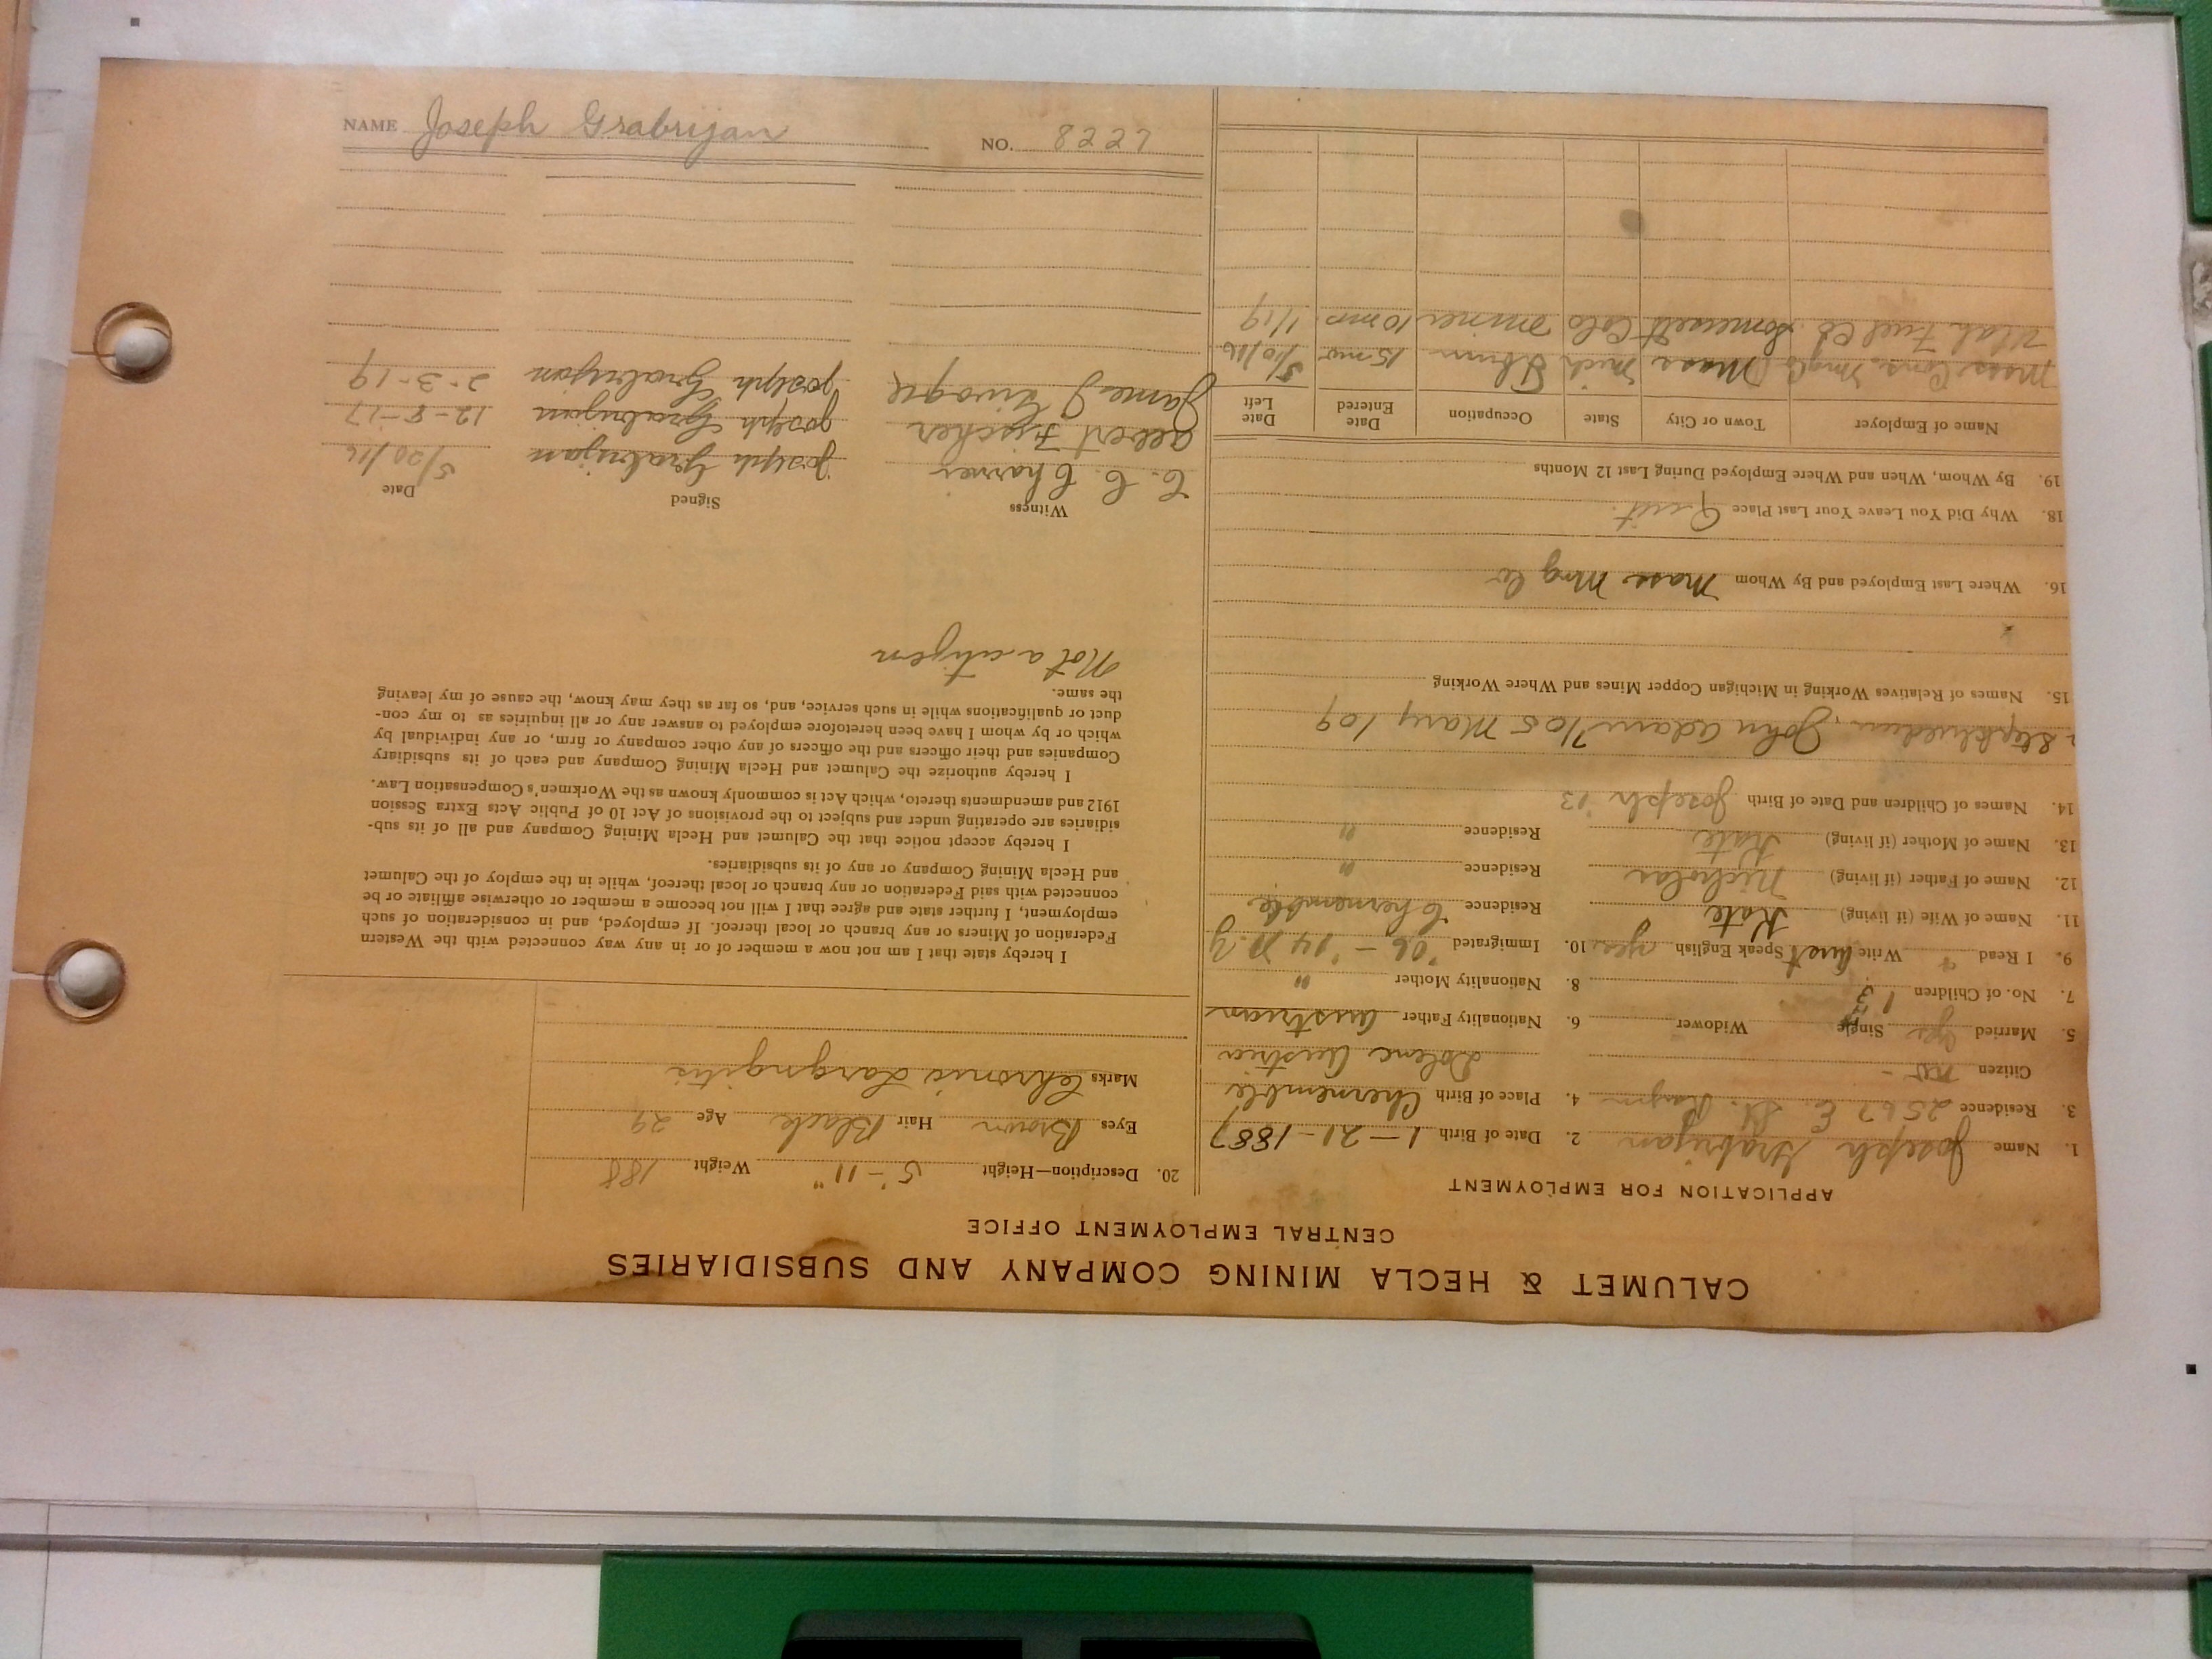 CALUMET & HECLA MINING COMPANY AND SUBSIDIARIES
CENTRAL EMPLOYMENT OFFICE
APPLICATION FOR EMPLOYMENT
1. Name Joseph Grabrijan 2. Date of Birth 1-21-1887
3. Residence 2567 E. St. 4. Place of Birth Chernemble
Citizen no - Austria
5. Married yes Single Widower 6. Nationality Father Austrian
7. No. of Children 1 3 8. Nationality Mother "
9. I Read Write Aust Speak English yes 10. Immigrated '06 - '14 N.Y
11. Name of Wife (if living) Kate Residence Chernemble
12. Name of Father (if living) Nicholas Residence "
13. Name of Mother (if living) Kate Residence "
14. Names of Children and Date of Birth Joseph '13
John Adam 7/05 Mary 109
15. Names of Relatives Working in Michigan Copper Mines and Where Working
16. Where Last Employed and By Whom Mass Mng Co
18. Why Did You Leave Your Last Place Quit.
19. By Whom, When and Where Employed During Last 12 Months
Name of Employer Town or City State Occupation Date Entered Date Left
Mass Cons. Mng Co Mass Mich 15 mo 5/10/16
Utah Fuel Co Somerset Colo miner 10 mos 1/19
20. Description—Height 5-11" Weight 188
Eyes Brown Hair Black Age 29
Marks Chronic Laryngitis
I hereby state that I am not now a member of or in any way connected with the Western
Federation of Miners or any branch or local thereof. If employed, and in consideration of such
employment, I further state and agree that I will not become a member or otherwise affiliate or be
connected with said Federation or any branch or local thereof, while in the employ of the Calumet
and Hecla Mining Company or any of its subsidiaries.
I hereby accept notice that the Calumet and Hecla Mining Company and all of its sub-
sidiaries are operating under and subject to the provisions of Act 10 of Public Acts Extra Session
1912 and amendments thereto, which Act is commonly known as the Workmen's Compensation Law.
I hereby authorize the Calumet and Hecla Mining Company and each of its subsidiary
Companies and their officers and the officers of any other company or firm, or any individual by
which or by whom I have been heretofore employed to answer any or all inquiries as to my con-
duct or qualifications while in such service, and, so far as they may know, the cause of my leaving
the same.
Not a citizen
Witness Signed Date
C. C. Joseph Grabrijan 5/20/16
Albert Fischer Joseph Grabrijan 12-8-17
James J Joseph Grabrijan 2-3-19
NAME Joseph Grabrijan NO. 8227